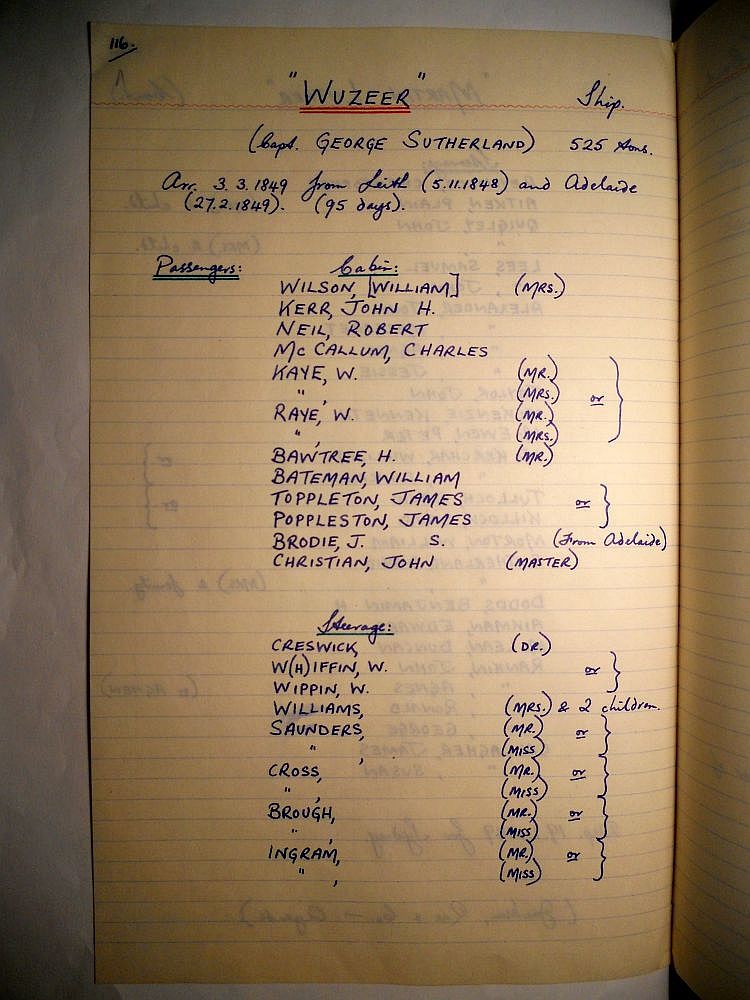 116.
"WUZEER" Ship.
(Capt. GEORGE SUTHERLAND) 525 tons.
Arr. 3.3.1849 from Leith (5.11.1848) and Adelaide
(27.2.1849). (95 days).
Passengers: Cabin:
WILSON, [WILLIAM] (MRS.)
KERR, JOHN H.
NEIL, ROBERT
McCALLUM, CHARLES
KAYE, W. (MR.)
" , (MRS.) or
RAYE, W. (MR.)
" , (MRS.)
BAWTREE, H. (MR.)
BATEMAN, WILLIAM
TOPPLETON, JAMES or
POPPLESTON, JAMES
BRODIE, J. S. (From Adelaide)
CHRISTIAN, JOHN (MASTER)
Steerage:
CRESWICK, (DR.)
W(H)IFFIN, W. or
WIPPIN, W.
WILLIAMS, (MRS.) & 2 children.
SAUNDERS, (MR.) or
" , (MISS)
CROSS, (MR.) or
" , (MISS)
BROUGH, (MR.) or
" , (MISS)
INGRAM, (MR.) or
" , (MISS)